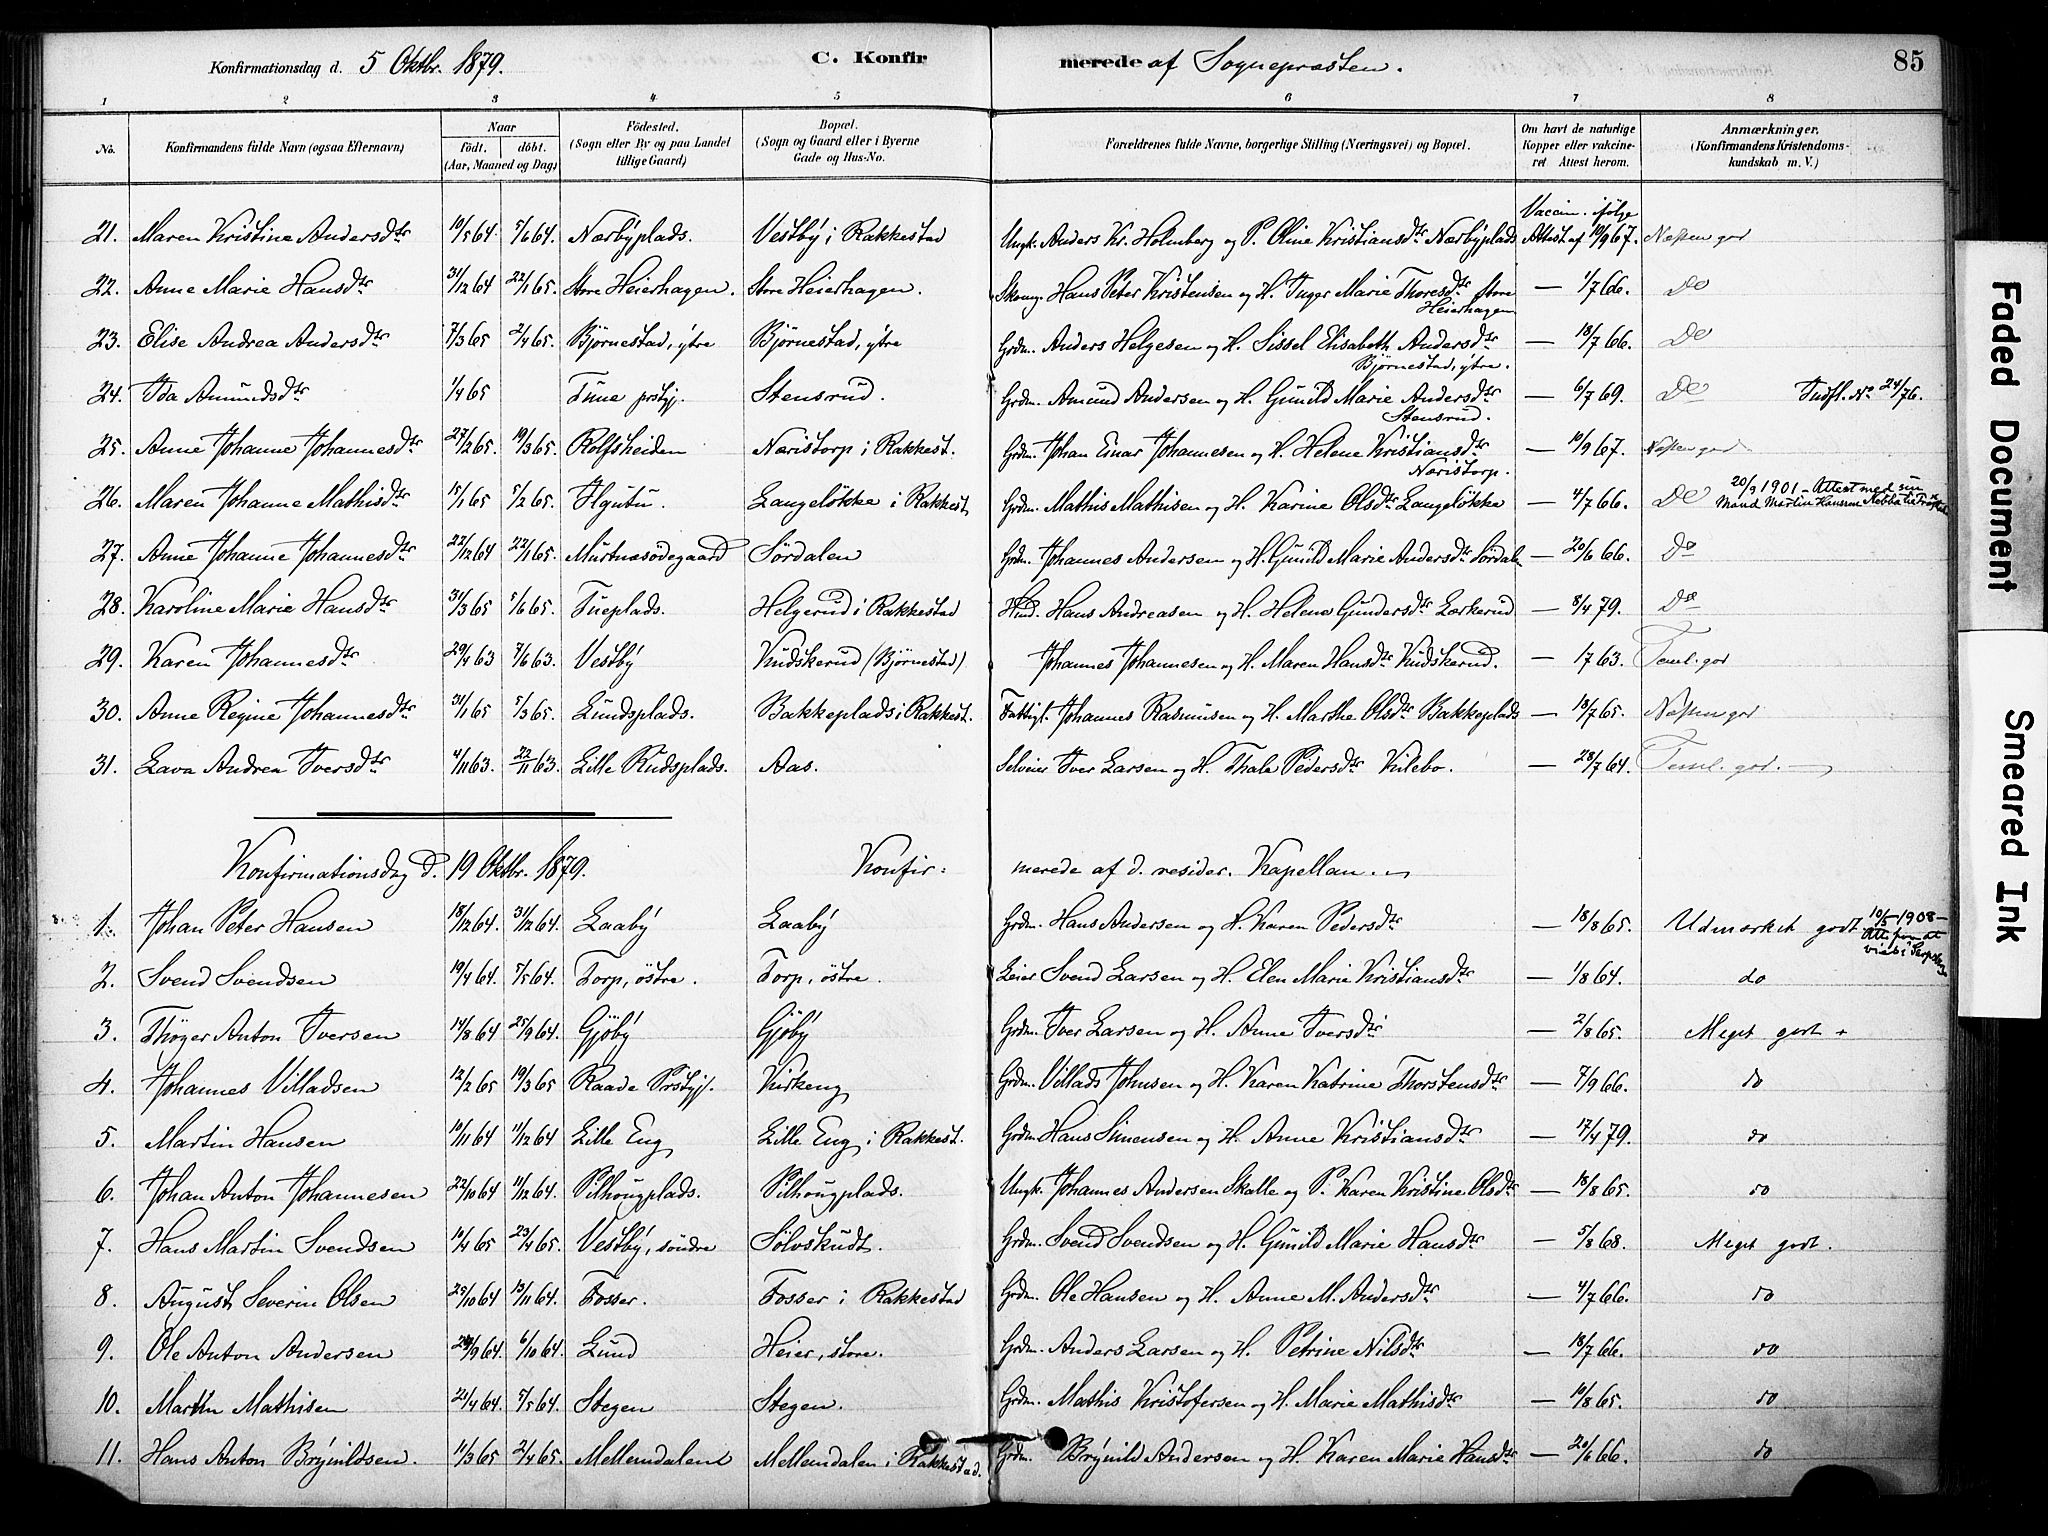 Konfirmationsdag d. 5 Oktbr. 1879. C. Konfirmerede af Sognepræsten. 85
1 2 3 4 5 6 7 8
No. Konfirmandens fulde Navn (ogsaa Efternavn) Naar født. døbt. (Aar, Maaned og Dag) Fødested. (Sogn eller By og paa Landet tillige Gaard) Bopæl. (Sogn og Gaard eller i Byerne Gade og Hus-No. Forældrenes fulde Navne, borgerlige Stilling (Næringsvei) og Bopæl. Om havt de naturlige Kopper eller vakcineret Attest herom. Anmærkninger. (Konfirmandens Kristendomskundskab m. V.)
21. Maren Kristine Andersdtr 10/5 64. 5/6 64. Nærbyplads. Vestby i Rakkestad Ungk. Anders Kr. Holmberg og P. Oline Kristiansdtr Nærbyplads Vaccin. ifølge Attest af 10/9 67. Næsten god
22. Anne Marie Hansdtr 31/12 64 22/1 65. Store Heierhagen. Store Heierhagen. Hans Peter Kristensen og H. Inger Marie Thoresdtr store Heierhagen — 1/7 66. Do
23. Elise Andrea Andersdtr 7/3 65 2/4 65. Bjørnestad, ytre Bjørnestad, ytre Grdm. Anders Helgesen og H. Sissel Elisabeth Andersdtr Bjørnestad, ytre. — 18/7 66. Do
24. Ida Amundsdtr 1/4 65 Tune prstgj. Stensrud. Grdm. Amund Andersen og H. Gunild Marie Andersdtr Stensrud. — 6/7 69. Do Indfl. No 24/76.
25. Anne Johanne Johannesdtr 27/2 65. 19/3 65. Rolfsheiden Næristorp i Rakkest. Grdm. Johan Einar Johannesen og H. Helene Kristiansdtr Næristorp. — 10/9 67. Næsten god
26. Maren Johanne Mathisdtr 15/1 65 5/2 65. Langeløkke i Rakkest Grdm. Mathis Mathisen og H. Karine Olsdtr Langeløkke — 4/7 66. Do 20/9 1901 - Attest med sin Mand Martin Hansen
27. Anne Johanne Johannesdtr 22/12 64 22/1 65. Murtnæsødegaard Sørdalen Grdm. Johannes Andersen og H. Gunild Marie Andersdtr Sørdalen — 20/6 66. Do
28. Karoline Marie Hansdtr 31/3 65 5/6 65. Tueplads. Helgerud i Rakkestad Hans Andreasen og H. Helene Gundersdtr Lærkerud — 8/4 79. Do
29. Karen Johannesdtr 29/4 63 7/6 63. Vestby Kudskerud (Bjørnestad) Johannes Johannesen og H. Maren Hansdtr Kudskerud. — 1763. Teml. god
30. Anne Regine Johannesdtr 31/1 65 5/3 65. Lundsplads. Bakkeplads i Rakkest. Fattigl. Johannes Rasmusen og H. Marthe Olsdtr Bakkeplads — 18/7 65. Næsten god
31. Lava Andrea Iversdtr 4/11 63. 22/11 63. Lille Rudsplads. Aas. Selveier Iver Larsen og H. Thale Pedersdtr Kilebo. — 28/7 64. Teml. god.
Konfirmationsdag d. 19 Oktbr. 1879. Konfir= merede af d. resider. Kapellan.
1. Johan Peter Hansen 18/12 64. 31/12 64. Laaby Laaby Grdm. Hans Andersen og H. Karen Pedersdtr — 18/8 65. Udmærket godt. 10/5 - 1908 -
2. Svend Svendsen 19/4 64. 7/5 64. Torp, østre. Torp, østre. Leier Svend Larsen og H. Elen Marie Kristiansdtr — 1/8 64. do
3. Thøger Anton Iversen 14/8 64 25/9 64. Gjøby Gjøby Grdm. Iver Larsen og H. Anne Iversdtr — 2/8 65. Meget godt
4. Johannes Villadsen 12/2 65 19/3 65 Raade Prstgj. Kirkeng Grdm. Villads Johnsen og H. Karen Katrine Thorstensdtr — 7/9 66. do
5. Martin Hansen 10/11 64 11/12 64 Lille Eng Lille Eng i Rakkest. Grdm. Hans Simensen og H. Anne Kristiansdtr — 17/4 79. do
6. Johan Anton Johannesen 22/10 64 11/12 64. Pilhougplads. Pilhougplads. Ungk. Johannes Andersen Skalle og P. Karen Kristine Olsdtr — 18/8 65. do
7. Hans Martin Svendsen 10/4 65 23/4 65. Vestby, søndre Sølvskudt. Grdm. Svend Svendsen og H. Gunild Marie Hansdtr — 5/8 68. Meget godt.
8. August Severin Olsen 25/10 64 13/11 64. Fosser. Fosser i Rakkestad Grdm. Ole Hansen og H. Anne M. Andersdtr — 4/7 66. do
9. Ole Anton Andersen 6/10 64. Lund Heier, store. Grdm. Anders Larsen og H. Petrine Nilsdtr — 18/7 66. do
10. Martin Mathisen 21/4 64. 7/5 64. Stegen Stegen. Grdm. Mathis Kristofersen og H. Marie Mathisdtr — 10/8 65. do
11. Hans Anton Brynildsen. 11/3 65 2/4 65. Mellemdalen Mellemdalen i Rakkestad. Grdm. Brynild Andersen og H. Karen Marie Hansdtr — 20/6 66. do
Faded Document
Smeared Ink